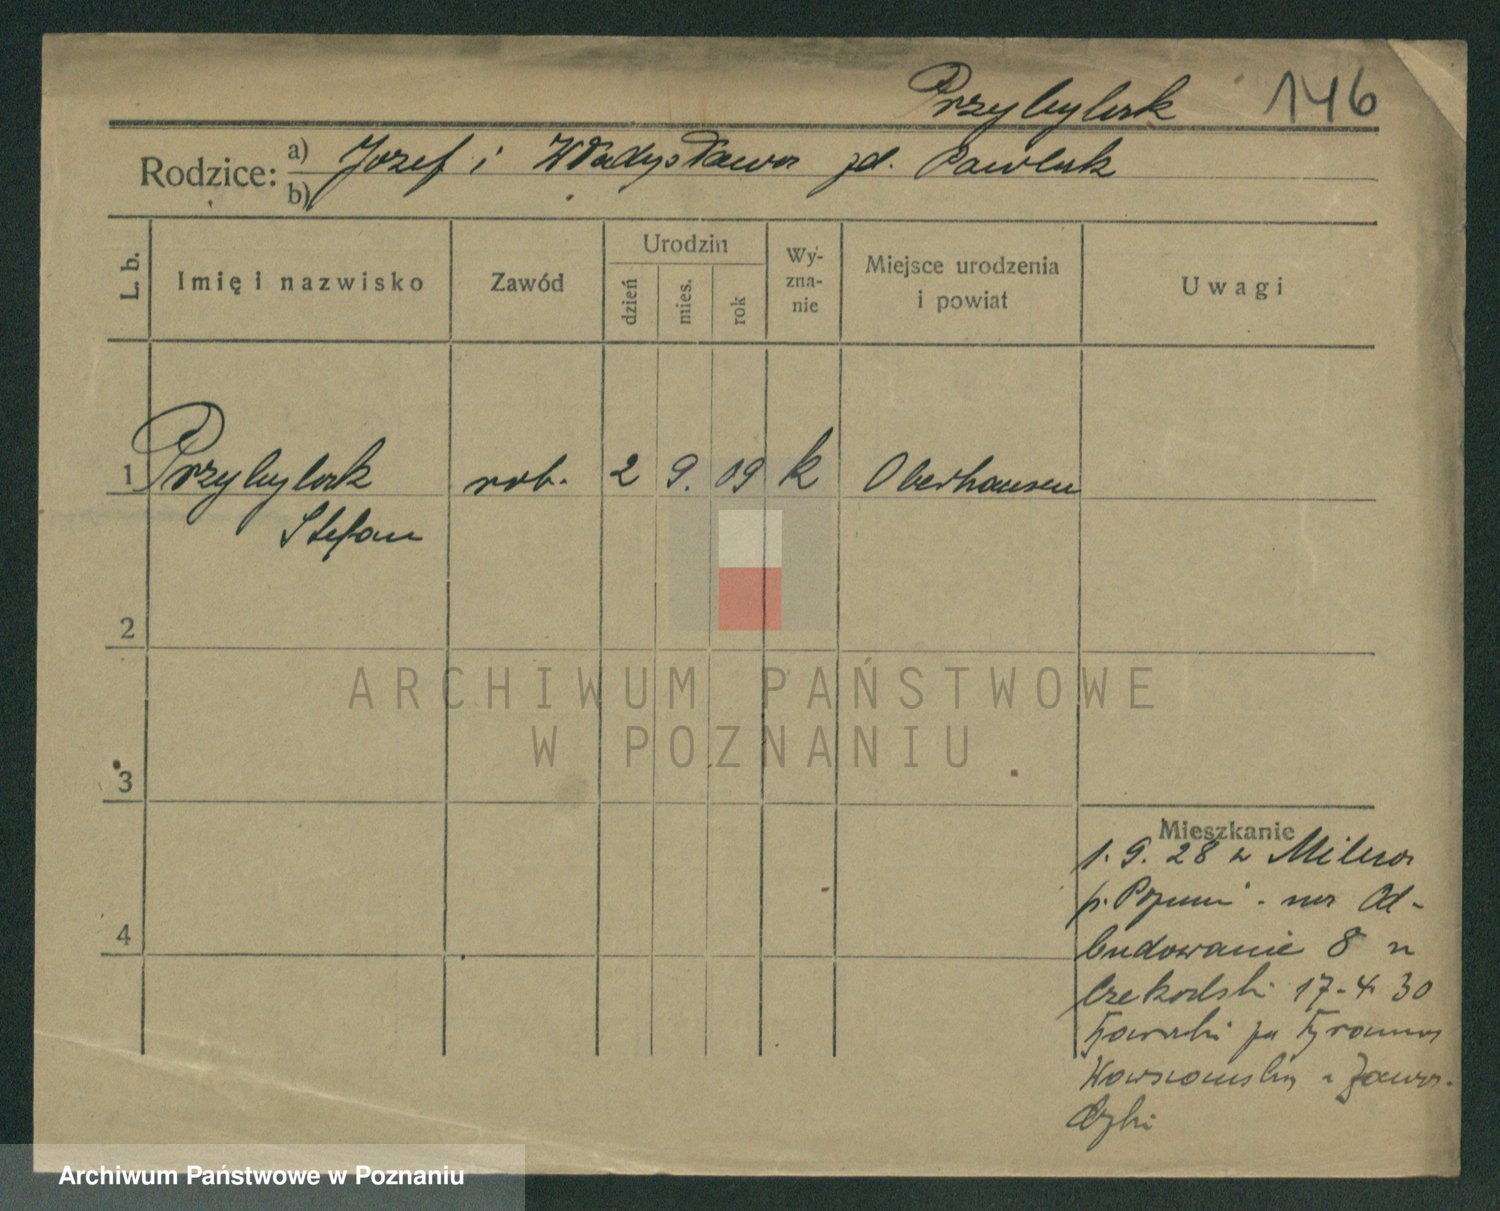 Przybylak 146
Rodzice: a) Józef i Władysława zd. Pawlak
b)
L. b.
Imię i nazwisko
Zawód
Urodzin
dzień
mies.
rok
Wy-
zna-
nie
Miejsce urodzenia
i powiat
Uwagi
1 Przybylak rob. 2 9. 09 k Oberhausen
Stefan
2
ARCHIWUM PAŃSTWOWE
W POZNANIU
3
Mieszkanie
1. 9. 28 w
p. na Od-
budowanie 8 u
17-4 30
4
Archiwum Państwowe w Poznaniu